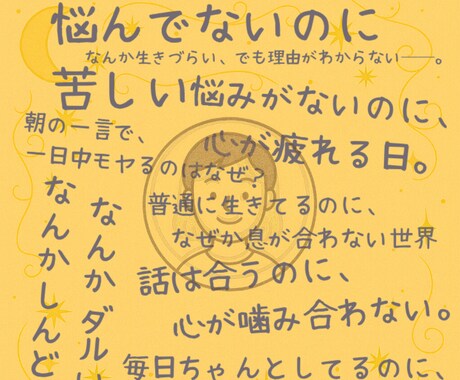 悩んでないのに
なんか生きづらい、でも理由がわからない──。
苦しい悩みがないのに、
心が疲れる日。
朝の一言で、
一日中モヤるのはなぜ?
普通に生きてるのに、
なぜか息が合わない世界
話は合うのに、
心が噛み合わない。
なんか ダル
なんかしんど
毎日ちゃんとしてるのに、